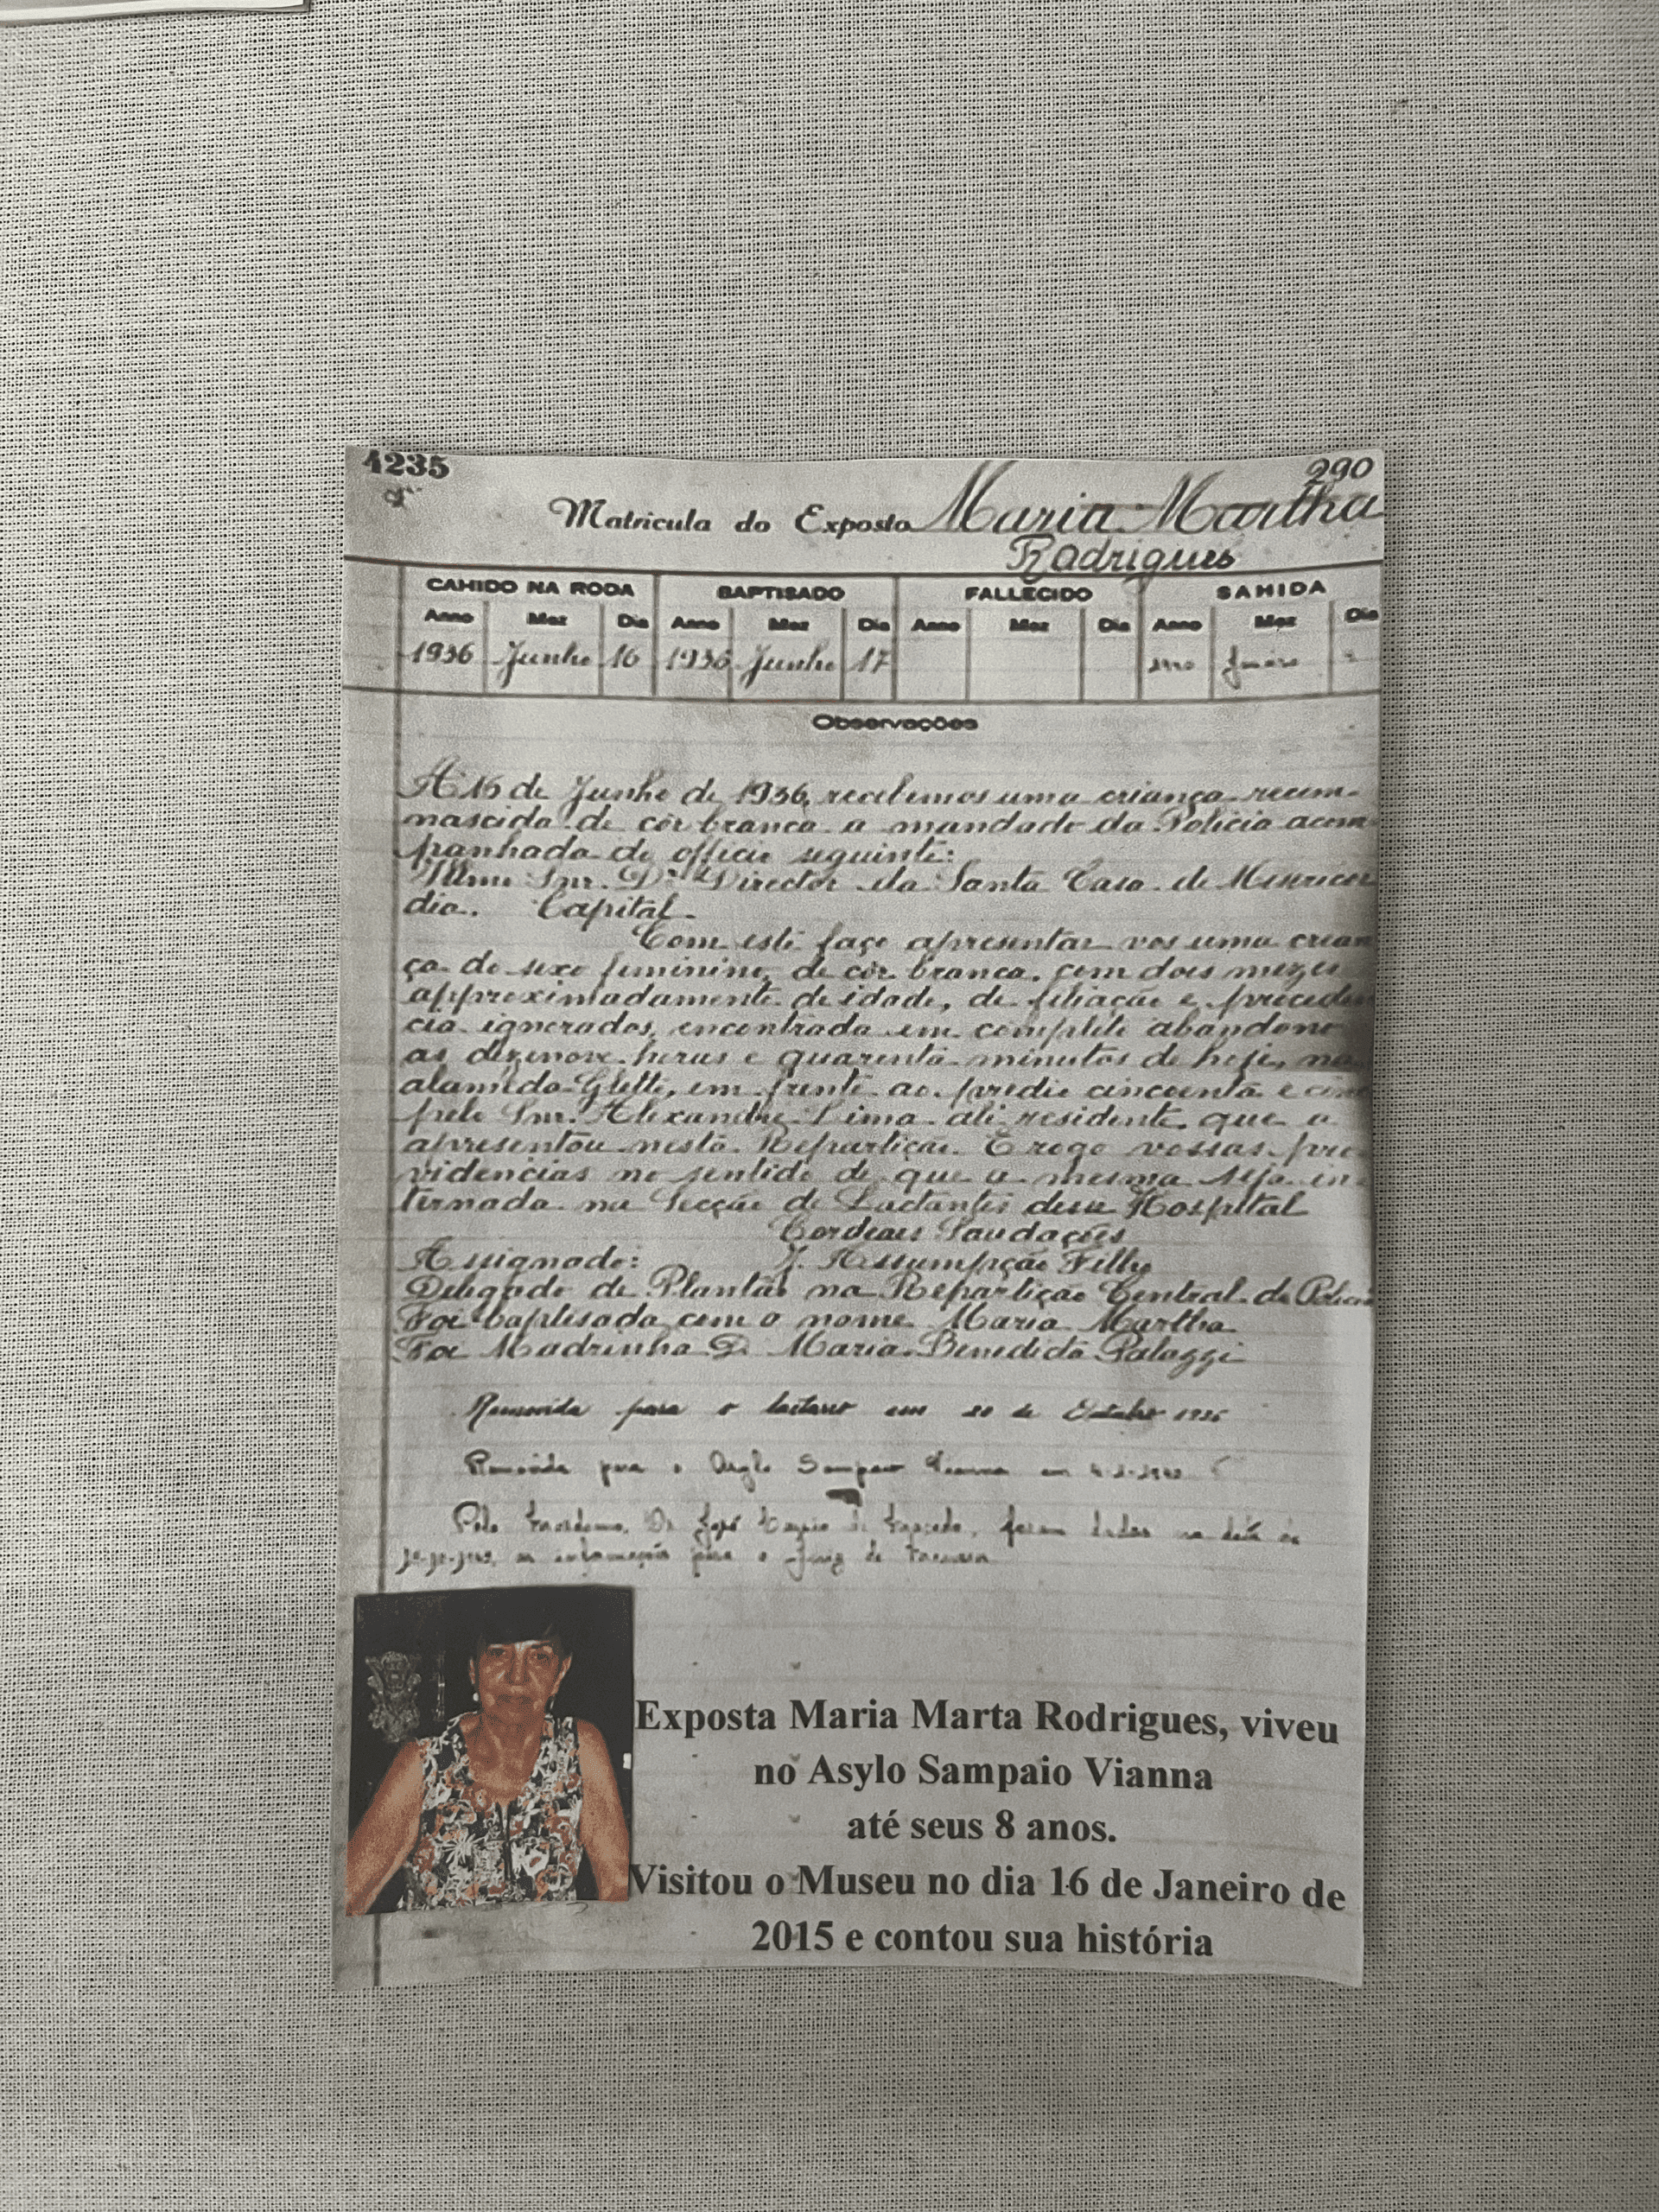 1235
290
Matricula do Exposto Maria Martha
Rodrigues
CAHIDO NA RODA BAPTISADO FALLECIDO SAHIDA
Anno Mez Dia Anno Mez Dia Anno Mez Dia Anno Mez Dia
1936 Junho 16 1936 Junho 17
Observações
A 16 de Junho de 1936, recebemos uma criança recem-
nascida de côr branca a mandado da Policia acom
panhada do officio seguinte:
Illmo Snr. Dr. Director da Santa Casa de Misericor
dia. Capital.
Com este faço apresentar vos uma crean
ça do sexo feminino, de côr branca, com dois mezes
approximadamente de idade, de filiação e proceden
cia ignorados, encontrada em completo abandono
as dezenove horas e quarenta minutos de hoje, na
alameda Glette, em frente ao predio cincoenta e cinc
pelo Snr. Alexandre Lima ali residente que a
apresentou nesta Repartição. E rogo vossas pro
videncias no sentido de que a mesma seja in-
ternada na Secção de Lactantes desse Hospital
Cordeaes Saudações
Assignado: J. Assumpção Filho
Delegado de Plantão na Repartição Central de Policia
Foi baptisada com o nome Maria Martha
Foi Madrinha D. Maria Benedicta Palaggi
Removida para o lactario em 20 de Outubro 1936
Removida para o Asylo Sampaio Vianna em
Pelo Dr. José de foram dadas na data de
as informações para o Juiz de
Exposta Maria Marta Rodrigues, viveu
no Asylo Sampaio Vianna
até seus 8 anos.
Visitou o Museu no dia 16 de Janeiro de
2015 e contou sua história